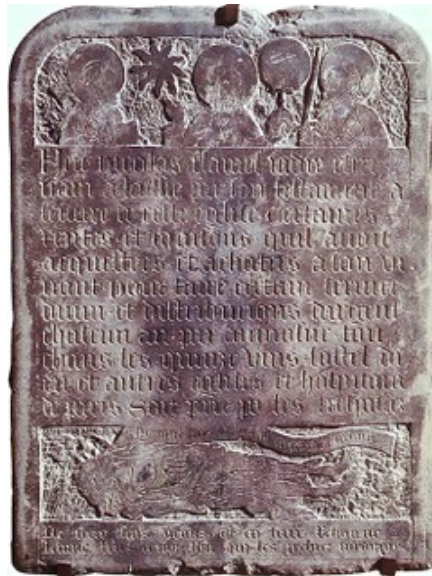 Feu nicolas flamel jadis escri
vain a laissie par son testament a
leuvre de ceste eglise certaines
rentes et maisons quil avoit
acquestees et achatees a son vi
vant pour faire certain service
divin et distributions dargent
chascun an par aumosne tou
chans les quinze vins lostel di
eu et autres eglises et hospitaux
Soit prie po les
De terre suis venus et en terre retorne